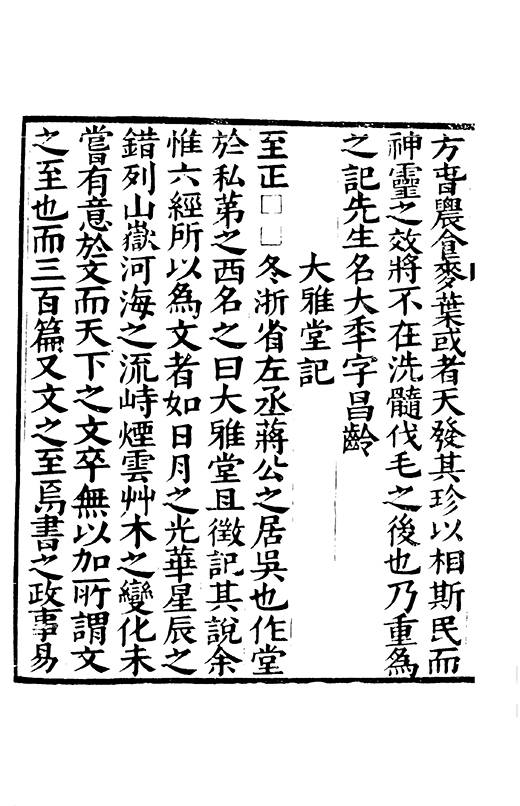 方嘗農會麥葉或者天發其珍以相斯民而
神靈之效將不在洗髓伐毛之後也乃重為
之記先生名大年字昌齡
大雅堂記
至正□□冬浙省左丞蔣公之居吳也作堂
於私第之西名之曰大雅堂且徵記其說余
惟六經所以為文者如日月之光華星辰之
錯列山嶽河海之流峙煙雲艸木之變化未
嘗有意於文而天下之文卒無以加所謂文
之至也而三百篇又文之至焉書之政事易